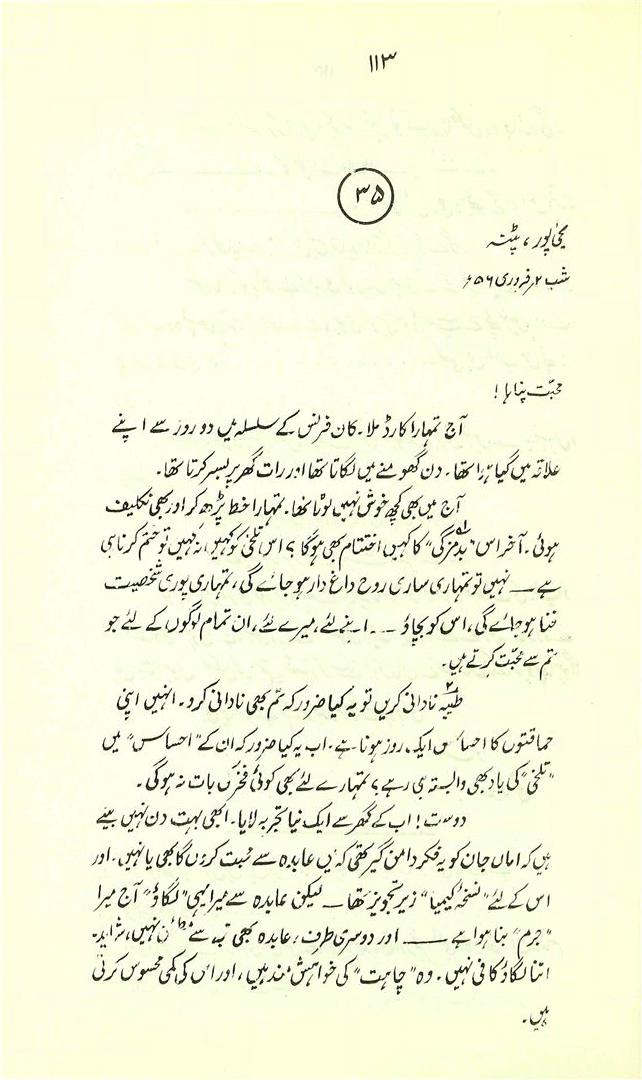 ۱۱۳
۳۵
محیٰ پور، پٹنہ
شب ۲؍ فروری ۵۶ء
محبّت پناہا!
آج تمہارا کارڈ ملا۔ کان فرنس کے سلسلہ میں دو روز سے اپنے
علاقہ میں گیا ہوا تھا۔ دن گھومنے میں لگاتا تھا اور رات گھر پر بسر کرتا تھا۔
آج میں بھی کچھ خوش نہیں لوٹا تھا۔ تمہارا خط پڑھ کر اور بھی تکلیف
ہوئی۔ آخر اس "بدمزگی"۱ کا کہیں اختتام بھی ہوگا؟ اس تلخی کو کہیں نہ کہیں تو ختم کرنا ہی
ہے ــــ نہیں تو تمہاری ساری روح داغ دار ہو جائے گی، تمہاری پوری شخصیت
فنا ہو جائے گی، اس کو بچاؤ ــــ اپنے لئے، میرے لئے، ان تمام لوگوں کے لئے جو
تم سے محبّت کرتے ہیں۔
طیبہ۲ نادانی کریں تو یہ کیا ضرور کہ تم بھی نادانی کرو۔ انہیں اپنی
حماقتوں کا احساس ایک روز ہونا ہے۔ اب یہ کیا ضرور کہ ان کے "احساس" میں
"تلخی" کی یاد بھی وابستہ ہی رہے؟ تمہارے لئے بھی کوئی فخر کی بات نہ ہوگی۔
دوست! اب کے گھر سے ایک نیا تجربہ لایا۔ ابھی بہت دن نہیں بیتے
ہیں کہ اماں جان کو یہ فکر دامن گیر تھی کہ میں عابدہ سے محبت کروں گا بھی یا نہیں۔ اور
اس کے لئے "نسخۂ کیمیا" زیر تجویز تھا ــــ لیکن عابدہ سے میرا یہی "لگاؤ" آج میرا
"جرم" بنا ہوا ہے ــــ اور دوسری طرف، عابدہ بھی مجھ سے مطمئن نہیں، شاید۔
اتنا لگاؤ کافی نہیں۔ وہ "چاہت" کی خواہش مند ہیں، اور اس کی کمی محسوس کرتی
ہیں۔